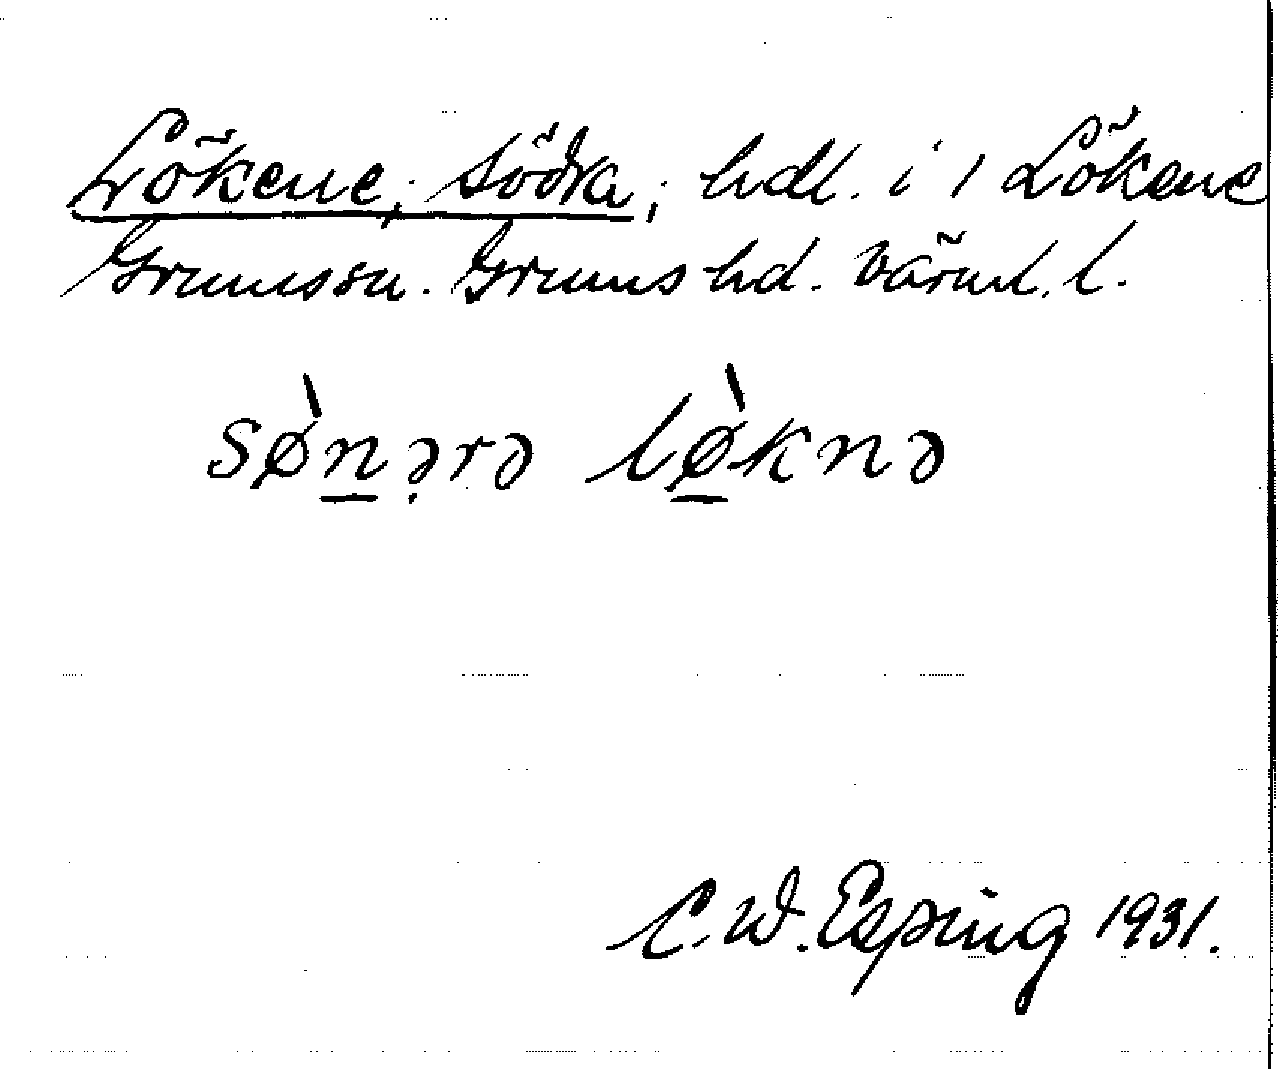 Lökene, Södra; hdl. i 1 Lökene
Grums sn. Grums hd. Värml. l.
sø̀n̲ə̣rə lø̲̀knə
C. W. Esping 1931.